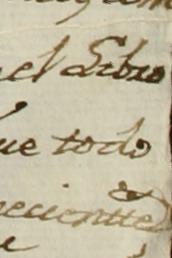 el Libro
ue todo
ecientte